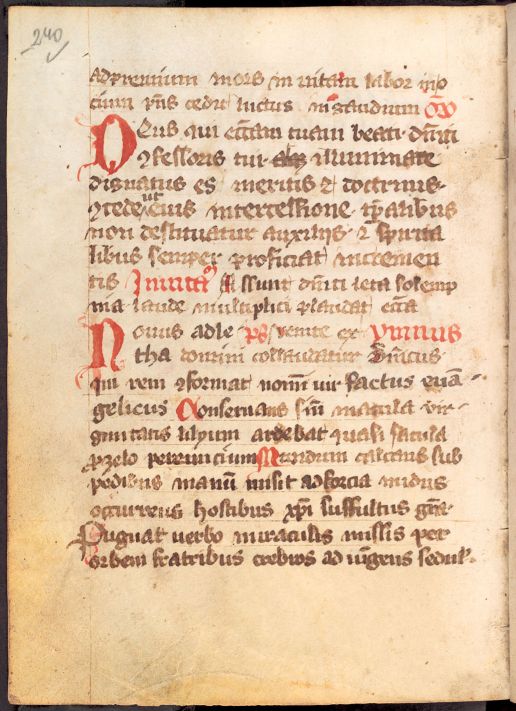 240
ad premium mors in vitam labor in p
cium pñs cedit luctus in gaudium Oꝛ
Deus qui eccãm tuam beati dñici
ꝯfessoris tui illuminare
dignatus es meritis ⁊ doctrinis
ꝯcede ut eius intercessione tp̃alibus
non destituatur auxilijs ⁊ spirita
libus semper proficiat incremen
tis Inuitã Assunt dñici leta solemp
nia laude multiplici plaudat eccã
Nouus adle ps venite ex Ymnus
tha domini collaudatur Dñicus
qui rem ꝯformat nomĩ vir factus euã
gelicus Conseruans sñ macula vir
ginitatis lilium ardebat quasi facula
pro zelo pereuncium Mundum calcans sub
pedibus manũ misit ad forcia nudus
occurrens hostibus xp̃i suffultus grã
Pugnat verbo miraculis missis per
orbem fratribus crebros ad iũgens